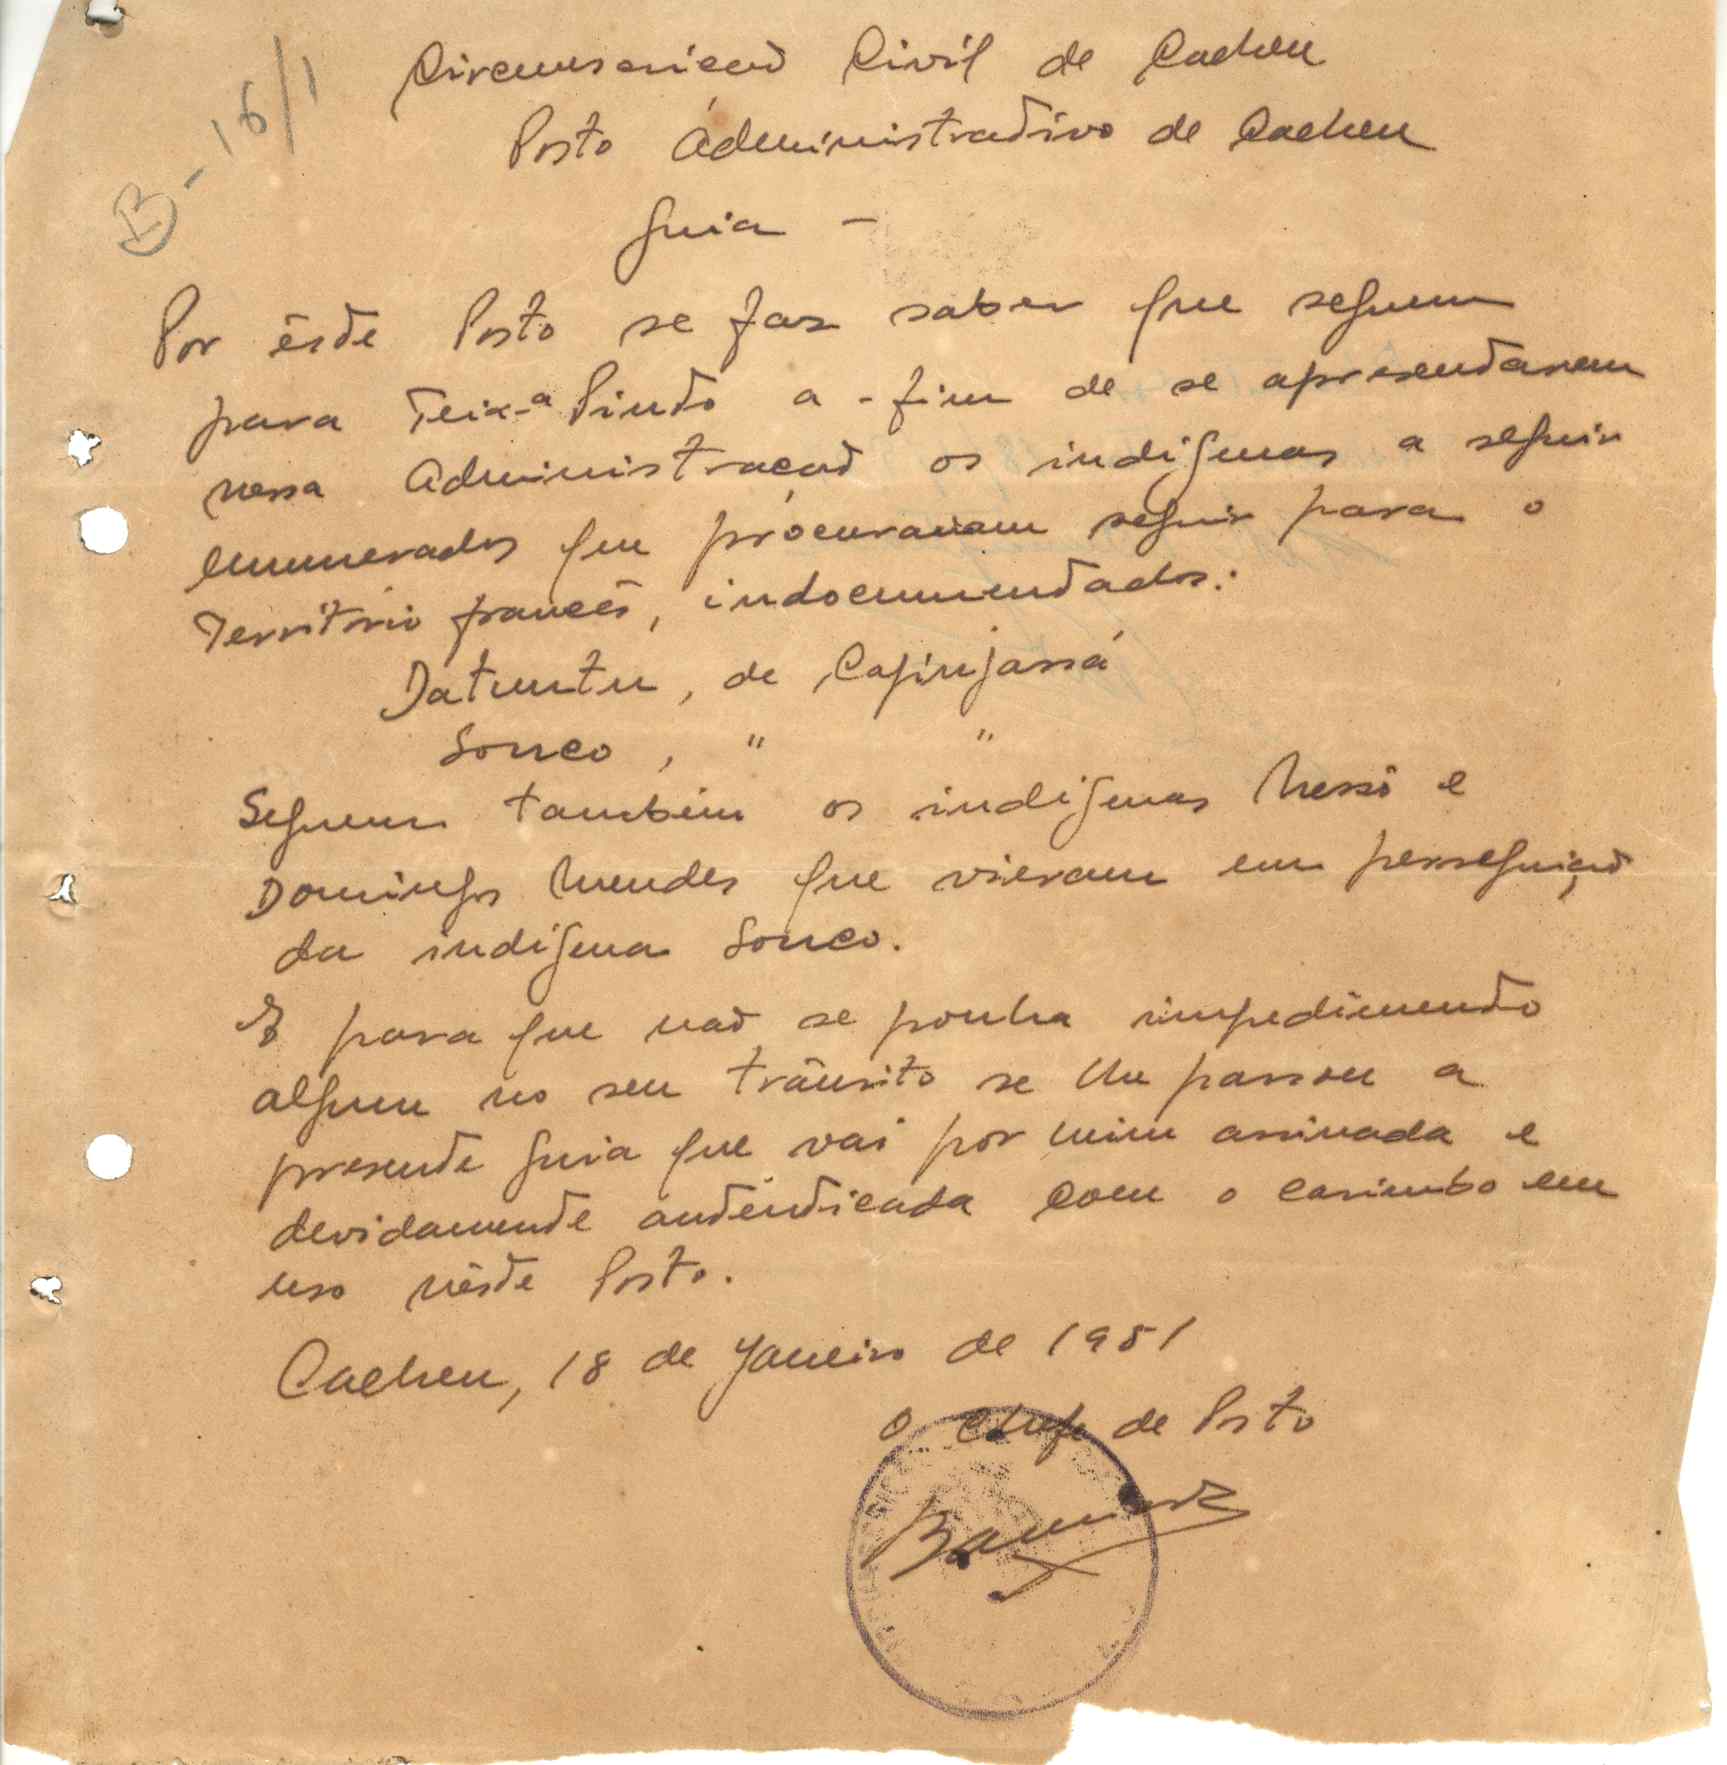 B-16/1
Circunscrição Civil de Cacheu
Posto Administrativo de Cacheu
Guia -
Por êste Posto se faz saber que seguem
para Teix.a Pinto a-fim de se apresentarem
nessa Administração os indígenas a seguir
enumerados que procuravam seguir para o
Território francês, indocumentados:
Datuntu, de Capinjassá
Sonco, " "
Seguem também os indígenas Nessó e
Domingos Mendes que vieram em perseguição
da indígena Sonco.
E para que não se ponha impedimento
algum no seu trânsito se lhe passou a
presente guia que vai por mim assinada e
devidamente autenticada com o carimbo em
uso nêste Posto.
Cacheu, 18 de Janeiro de 1951
O Chefe de Posto